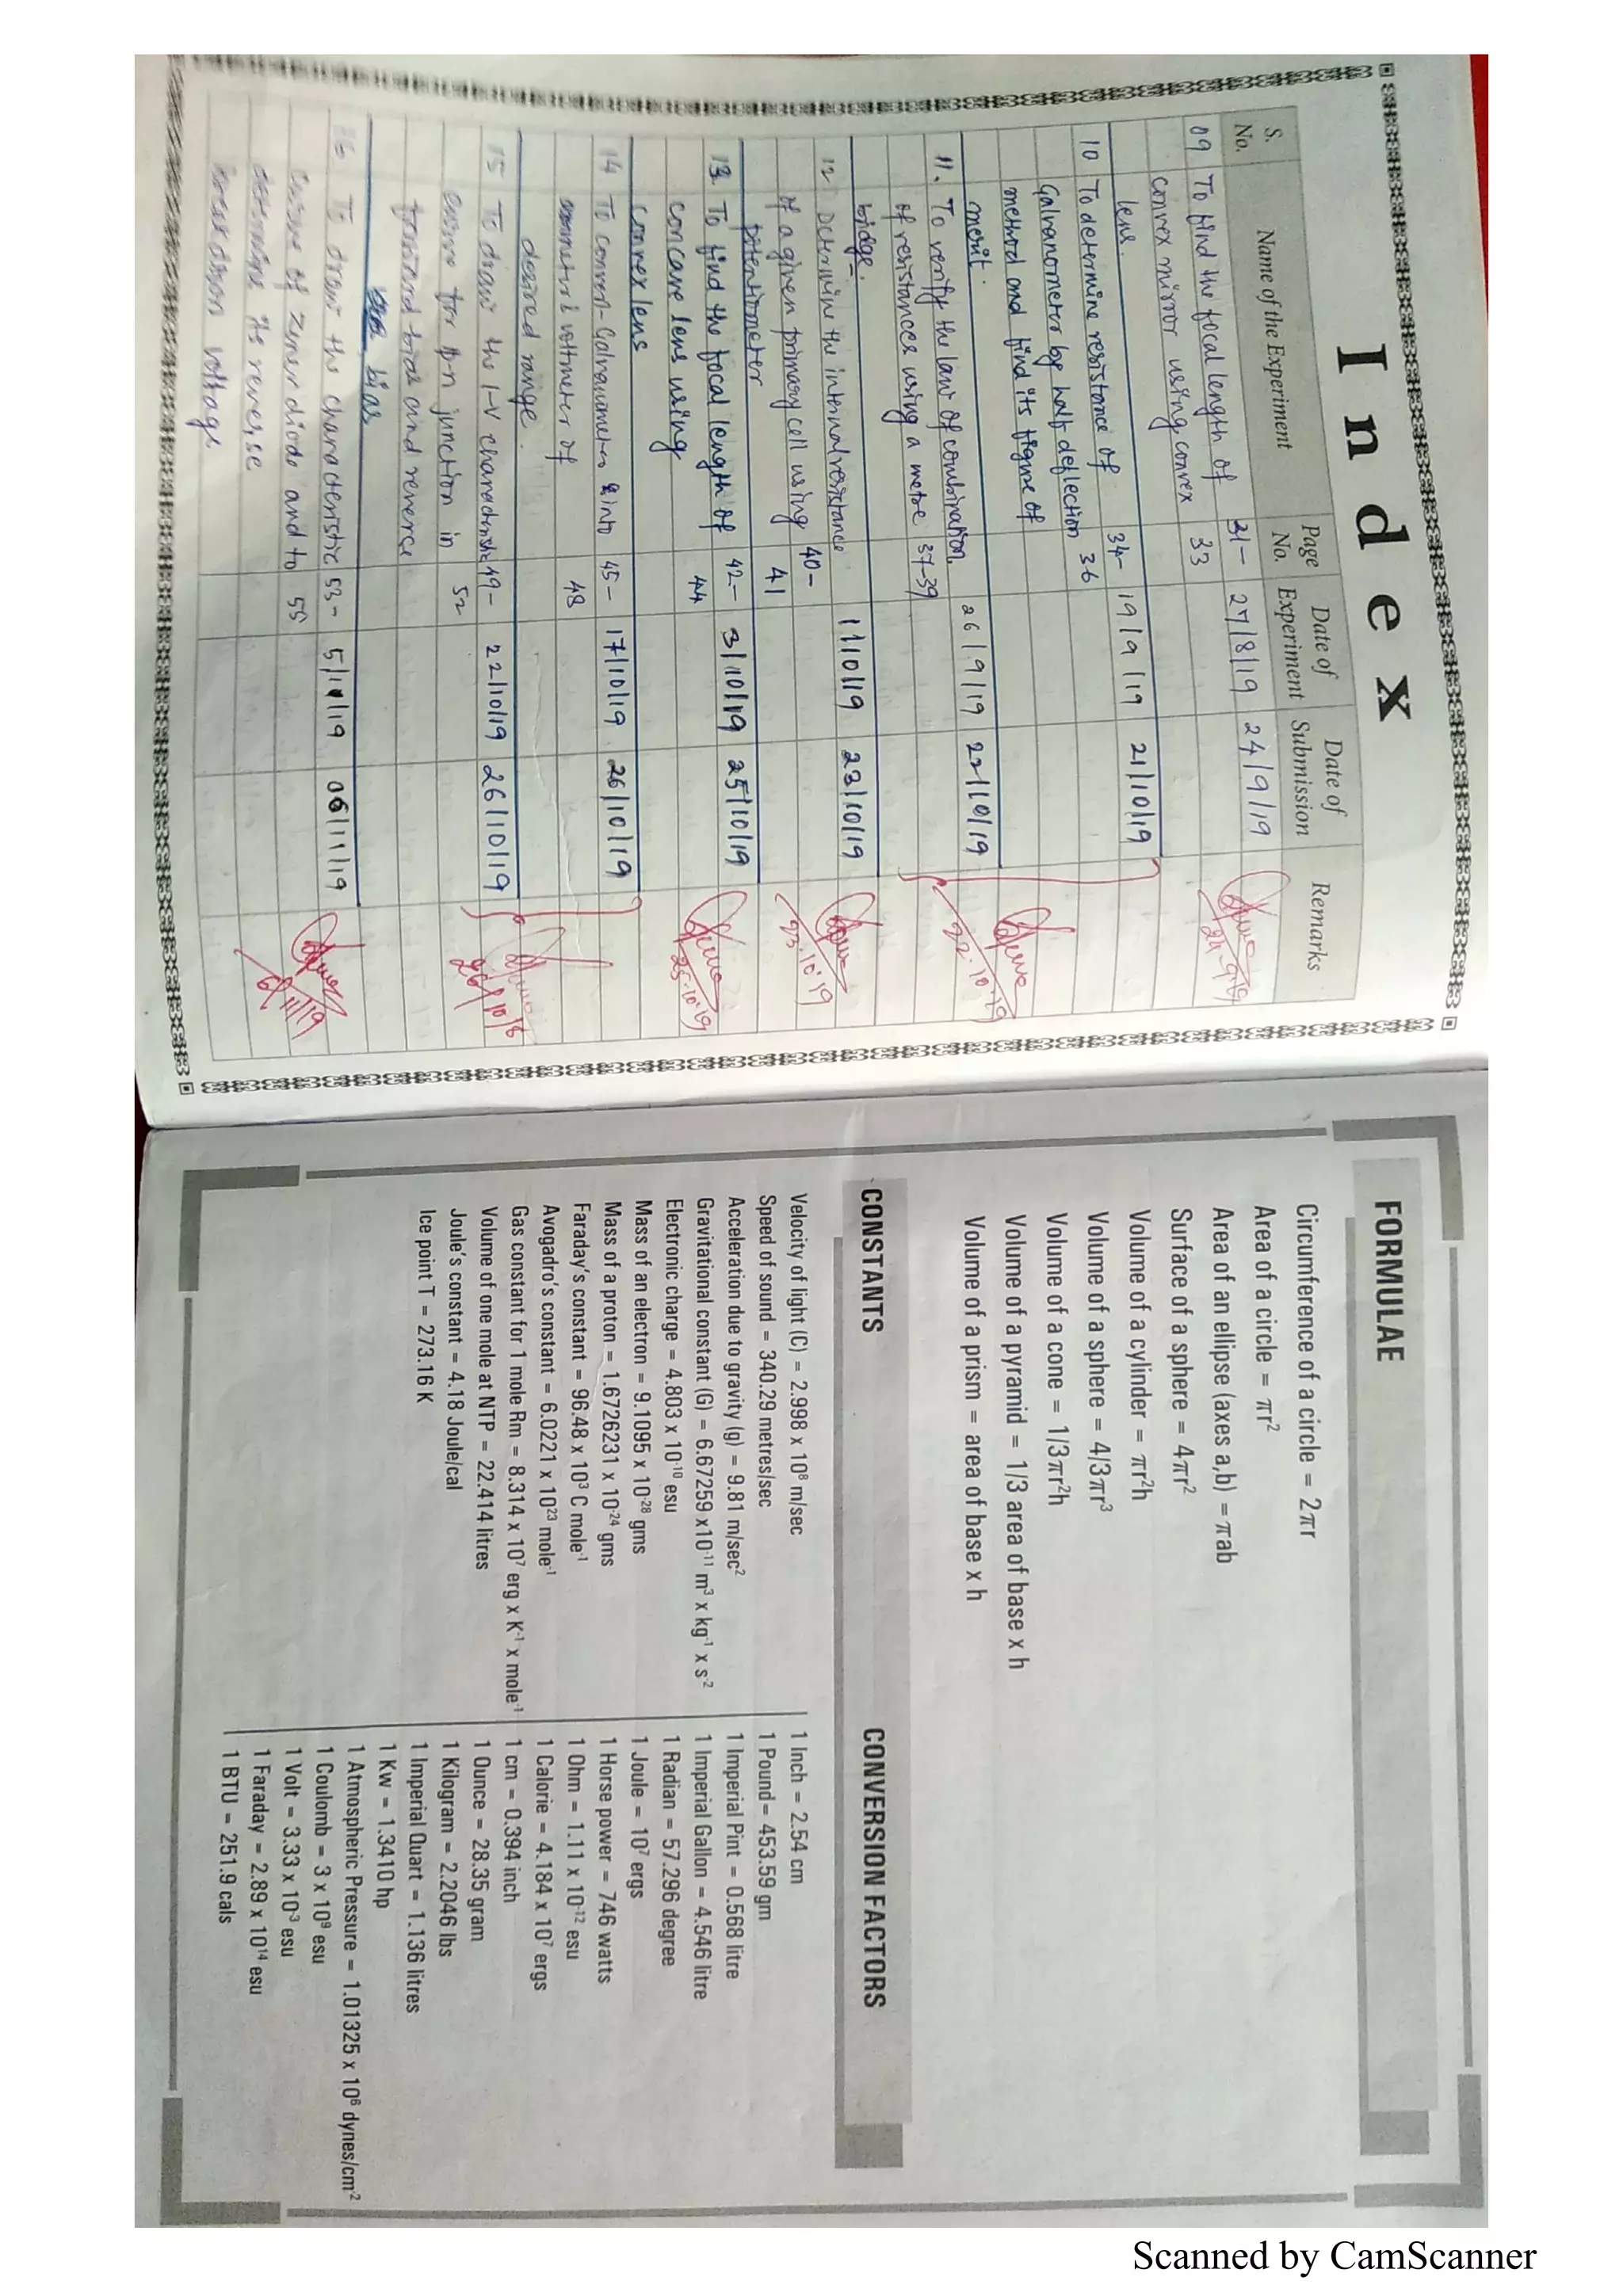 Index
S. No.
Name of the Experiment
Page No.
Date of Experiment
Date of Submission
Remarks
09 To find the focal length of 31- 27/8/19 24/9/19
convex mirror using convex 33
lens.
24-9-19
10 To determine resistance of 34- 19/9/19 21/10/19
Galvanometer by half deflection 36
method and find its figure of
merit.
11. To verify the law of combination 26/9/19 22/10/19
of resistances using a metre 37-39
bridge.
22.10.19
12 Determine the internal resistance 1/10/19 23/10/19
of a given primary cell using 40-
potentiometer 41
23.10.19
13. To find the focal length of 42- 3/10/19 25/10/19
concave lens using 44
convex lens
25.10.19
14 To convert Galvanometer into 45- 17/10/19 26/10/19
ammeter & voltmeter of 48
desired range.
15 To draw the I-V characteristic 49- 22/10/19 26/10/19
curve for p-n junction in 52
forward bias and reverse
bias
16 To draw the characteristic 53- 5/11/19 06/11/19
curve of zener diode and to 55
determine its reverse
break down voltage
6/11/19
FORMULAE
Circumference of a circle = 2πr
Area of a circle = πr²
Area of an ellipse (axes a,b) = πab
Surface of a sphere = 4πr²
Volume of a cylinder = πr²h
Volume of a sphere = 4/3πr³
Volume of a cone = 1/3πr²h
Volume of a pyramid = 1/3 area of base x h
Volume of a prism = area of base x h
CONSTANTS
Velocity of light (C) = 2.998 x 10⁸ m/sec
Speed of sound = 340.29 metres/sec
Acceleration due to gravity (g) = 9.81 m/sec²
Gravitational constant (G) = 6.67259 x10⁻¹¹ m³ x kg⁻¹ x s⁻²
Electronic charge = 4.803 x 10⁻¹⁰ esu
Mass of an electron = 9.1095 x 10⁻²⁸ gms
Mass of a proton = 1.6726231 x 10⁻²⁴ gms
Faraday's constant = 96.48 x 10³ C mole⁻¹
Avogadro's constant = 6.0221 x 10²³ mole⁻¹
Gas constant for 1 mole Rm = 8.314 x 10⁷ erg x K⁻¹ x mole⁻¹
Volume of one mole at NTP = 22.414 litres
Joule's constant = 4.18 Joule/cal
Ice point T = 273.16 K
CONVERSION FACTORS
1 Inch = 2.54 cm
1 Pound= 453.59 gm
1 Imperial Pint = 0.568 litre
1 Imperial Gallon = 4.546 litre
1 Radian = 57.296 degree
1 Joule = 10⁷ ergs
1 Horse power = 746 watts
1 Ohm = 1.11 x 10⁻¹² esu
1 Calorie = 4.184 x 10⁷ ergs
1 cm = 0.394 inch
1 Ounce = 28.35 gram
1 Kilogram = 2.2046 lbs
1 Imperial Quart = 1.136 litres
1 Kw = 1.3410 hp
1 Atmospheric Pressure = 1.01325 x 10⁶ dynes/cm⁻²
1 Coulomb = 3 x 10⁹ esu
1 Volt = 3.33 x 10⁻³ esu
1 Faraday = 2.89 x 10¹⁴ esu
1 BTU = 251.9 cals
Scanned by CamScanner